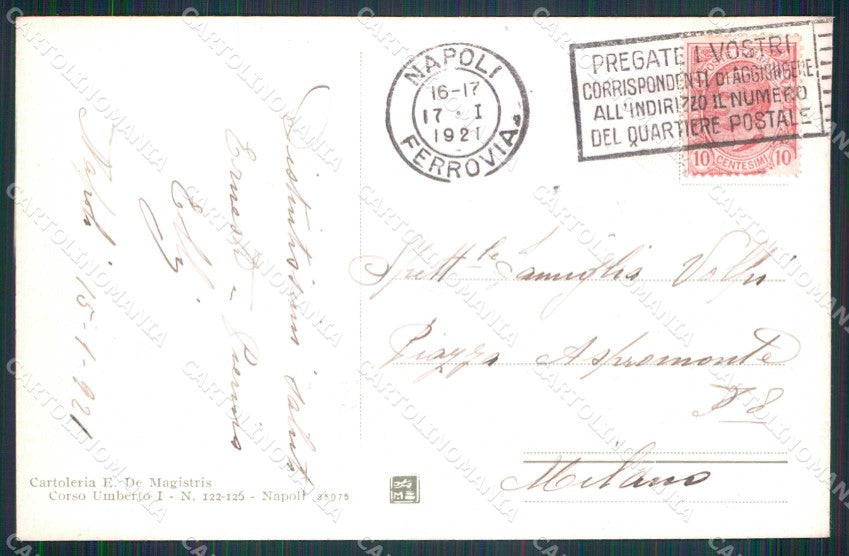 NAPOLI
16-17
17 · I
1921
FERROVIA
PREGATE I VOSTRI
CORRISPONDENTI DI AGGIUNGERE
ALL'INDIRIZZO IL NUMERO
DEL QUARTIERE POSTALE
10 CENTESIMI 10
Distintissimi saluti
Napoli 15-1-921
Spett.le Famiglia
Piazza Aspromonte
Milano
Cartoleria E. De Magistris
Corso Umberto I - N. 122-126 - Napoli
CARTOLINOMANIA